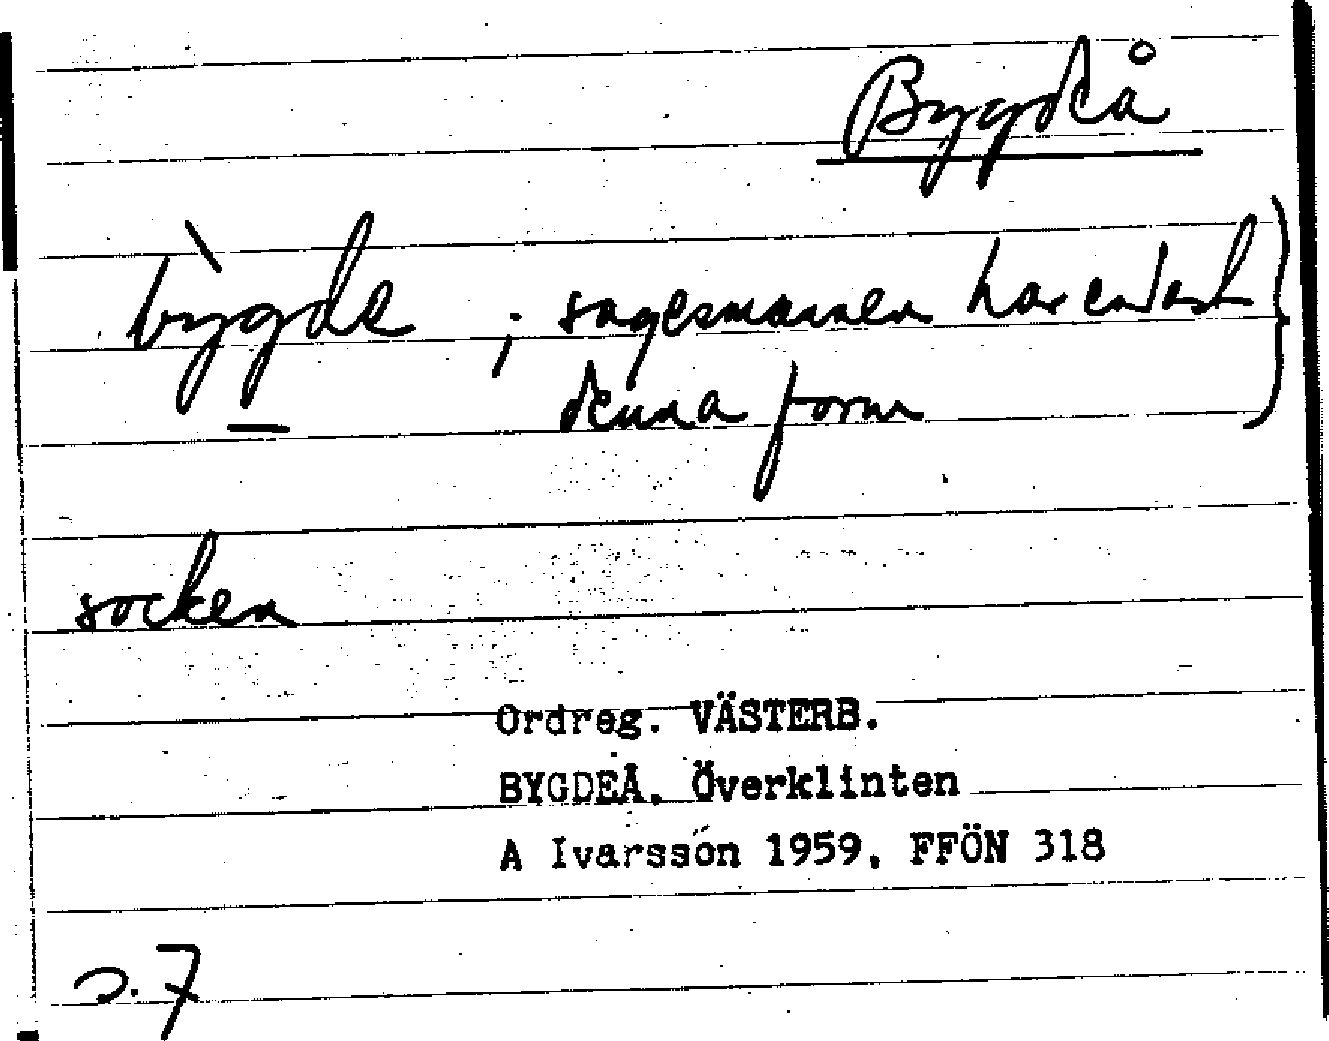 Bygdeå
bỳgde ; sagesmannen har endast }
denna form
socken
Ordreg. VÄSTERB.
BYGDEÅ. Överklinten
A Ivarsson 1959. FFÖN 318
s. 7